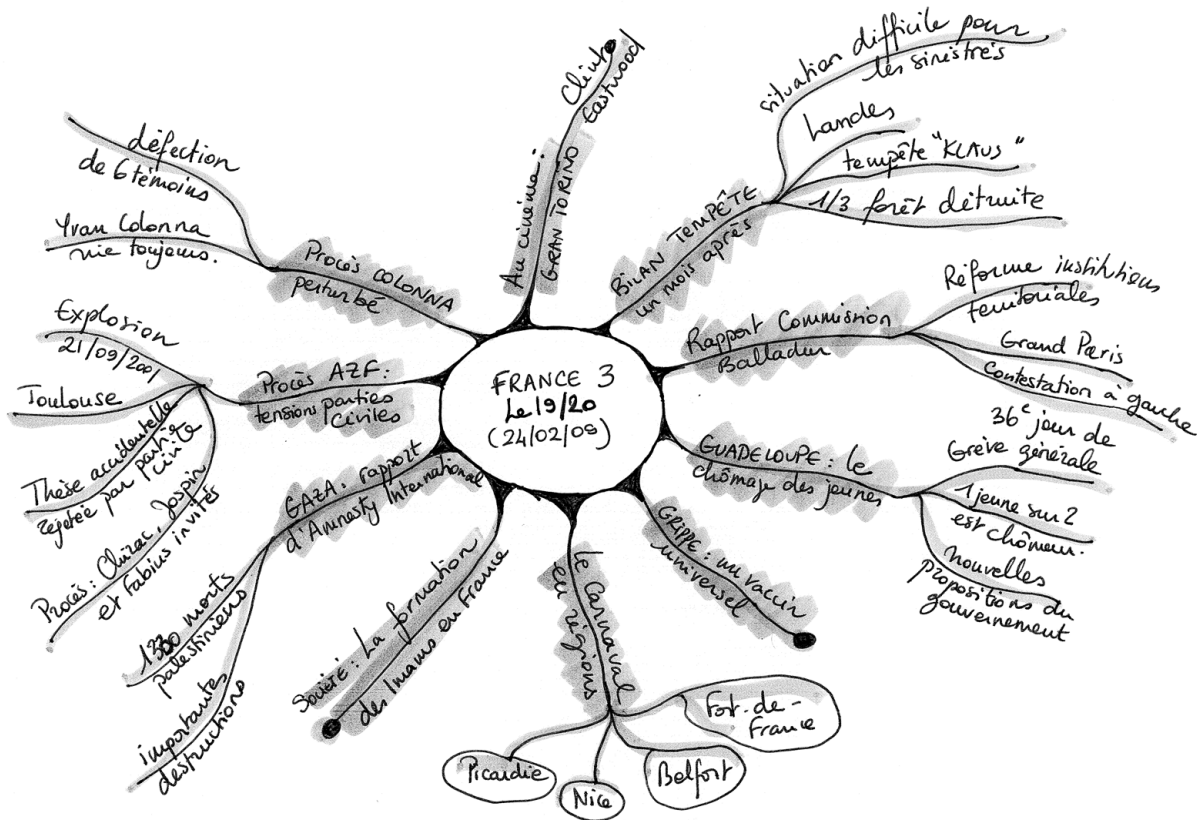 FRANCE 3
Le 19/20
(24/02/09)
BILAN TEMPÊTE
un mois après
situation difficile pour
les sinistrés
Landes
tempête "KLAUS"
1/3 forêt détruite
Rapport Commission
Balladur
Réforme institutions
territoriales
Grand Paris
Contestation à gauche
GUADELOUPE : le
chômage des jeunes
36e jour de
Grève générale
1 jeune sur 2
est chômeur.
nouvelles
propositions du
gouvernement
GRIPPE : un vaccin
universel
Le Carnaval
en régions
Fort-de-
France
Belfort
Nice
Picardie
Société : La formation
des Imams en France
GAZA : rapport
d'Amnesty International
1330 morts
palestiniens
importantes
destructions
Procès AZF :
tensions parties
civiles
Explosion
21/09/2001
Toulouse
Thèse accidentelle
rejetée par partie
civile
Procès : Chirac, Jospin
et Fabius invités
Procès COLONNA
perturbé
défection
de 6 témoins
Yvan Colonna
nie toujours.
Au cinéma :
GRAN TORINO
Clint
Eastwood